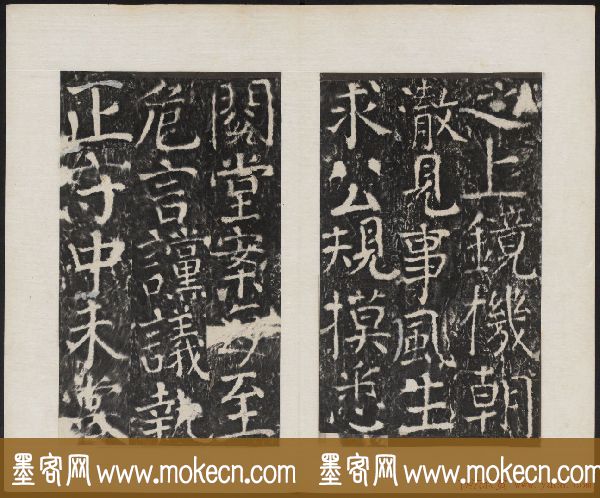 之上鏡機朝
澈見事風生
求公規摸
閱堂案每至
危言讜議執
正守中未
墨客网 www.mokecn.com
墨客网 www.mokecn.com